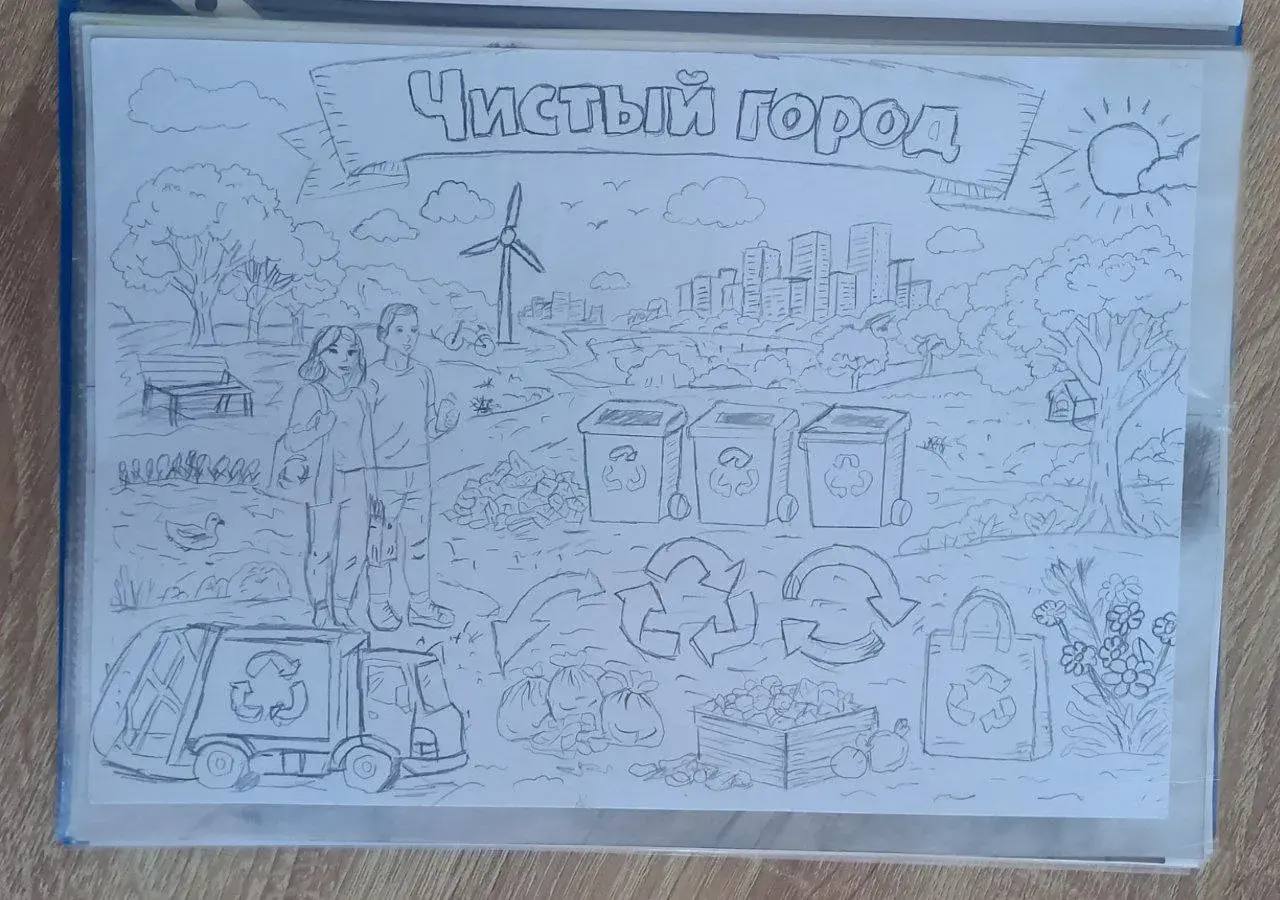 Чистый город